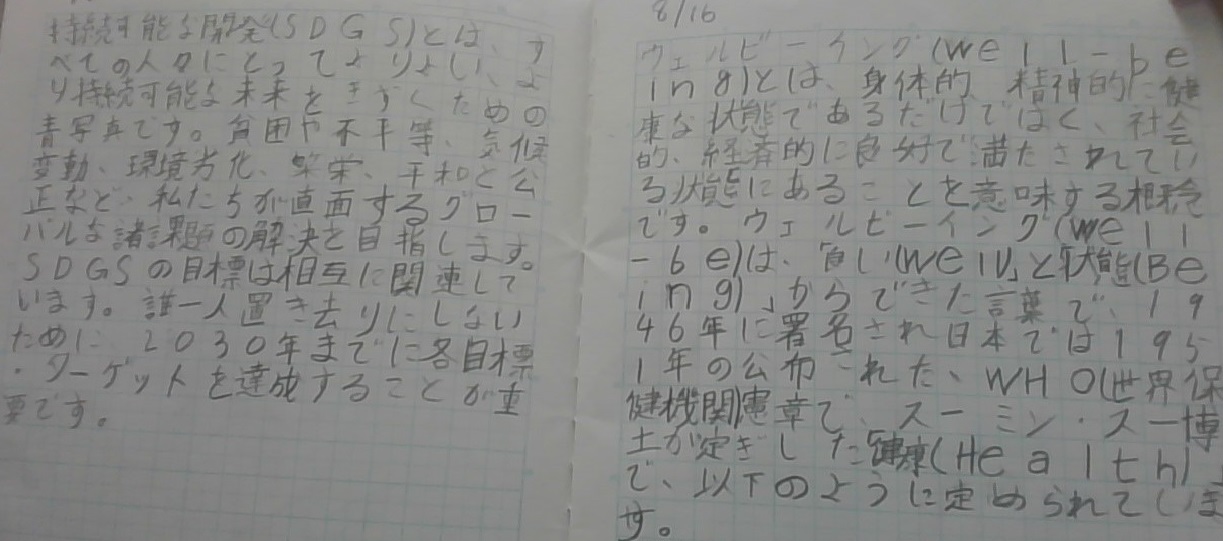 持続可能な開発(SDGS)とは、す
べての人々にとってよりよい、よ
り持続可能な未来をきずくための
青写真です。貧困や不平等、気候
変動、環境劣化、繁栄、平和と公
正など、私たちが直面するグロー
バルな諸課題の解決を目指します。
SDGSの目標は相互に関連して
います。誰一人置き去りにしない
ために2030年までに各目標
・ターゲットを達成することが重
要です。
8/16
ウェルビーイング(well-be
ing)とは、身体的、精神的に健
康な状態であるだけではく、社会
的、経済的に良好で満たされてい
る状態にあることを意味する概念
です。ウェルビーイング(well
-be)は、「良い(Well)」と「状態(Be
ing)」からできた言葉で、19
46年に署名され日本では195
1年の公布された、WHO(世界保
健機関)憲章で、スーミン・スー博
士が定ぎした「健康(Health)」
で、以下のように定められていま
す。